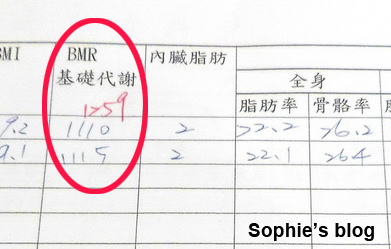 BMI BMR 內臟脂肪
基礎代謝 全身
脂肪率 骨骼率
1259
9.2 1110 2 22.2 26.2
9.1 1115 2 22.1 26.4
Sophie's blog